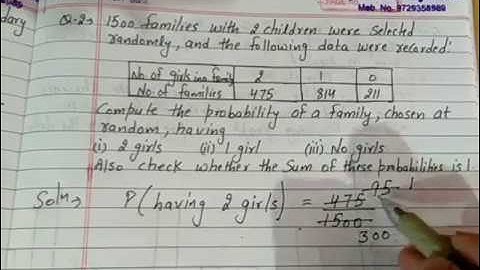 Mob. No. 9729358989
dary
Q-2→ 1500 families with 2 children were selected
randomly, and the following data were recorded:
No. of girls in a family 2 1 0
No. of families 475 814 211
Compute the probability of a family, chosen at
random, having
(i) 2 girls (ii) 1 girl (iii) No girls
Also check whether the Sum of these probabilities is 1.
Soln→ P(having 2 girls) = 475 95
1500
300